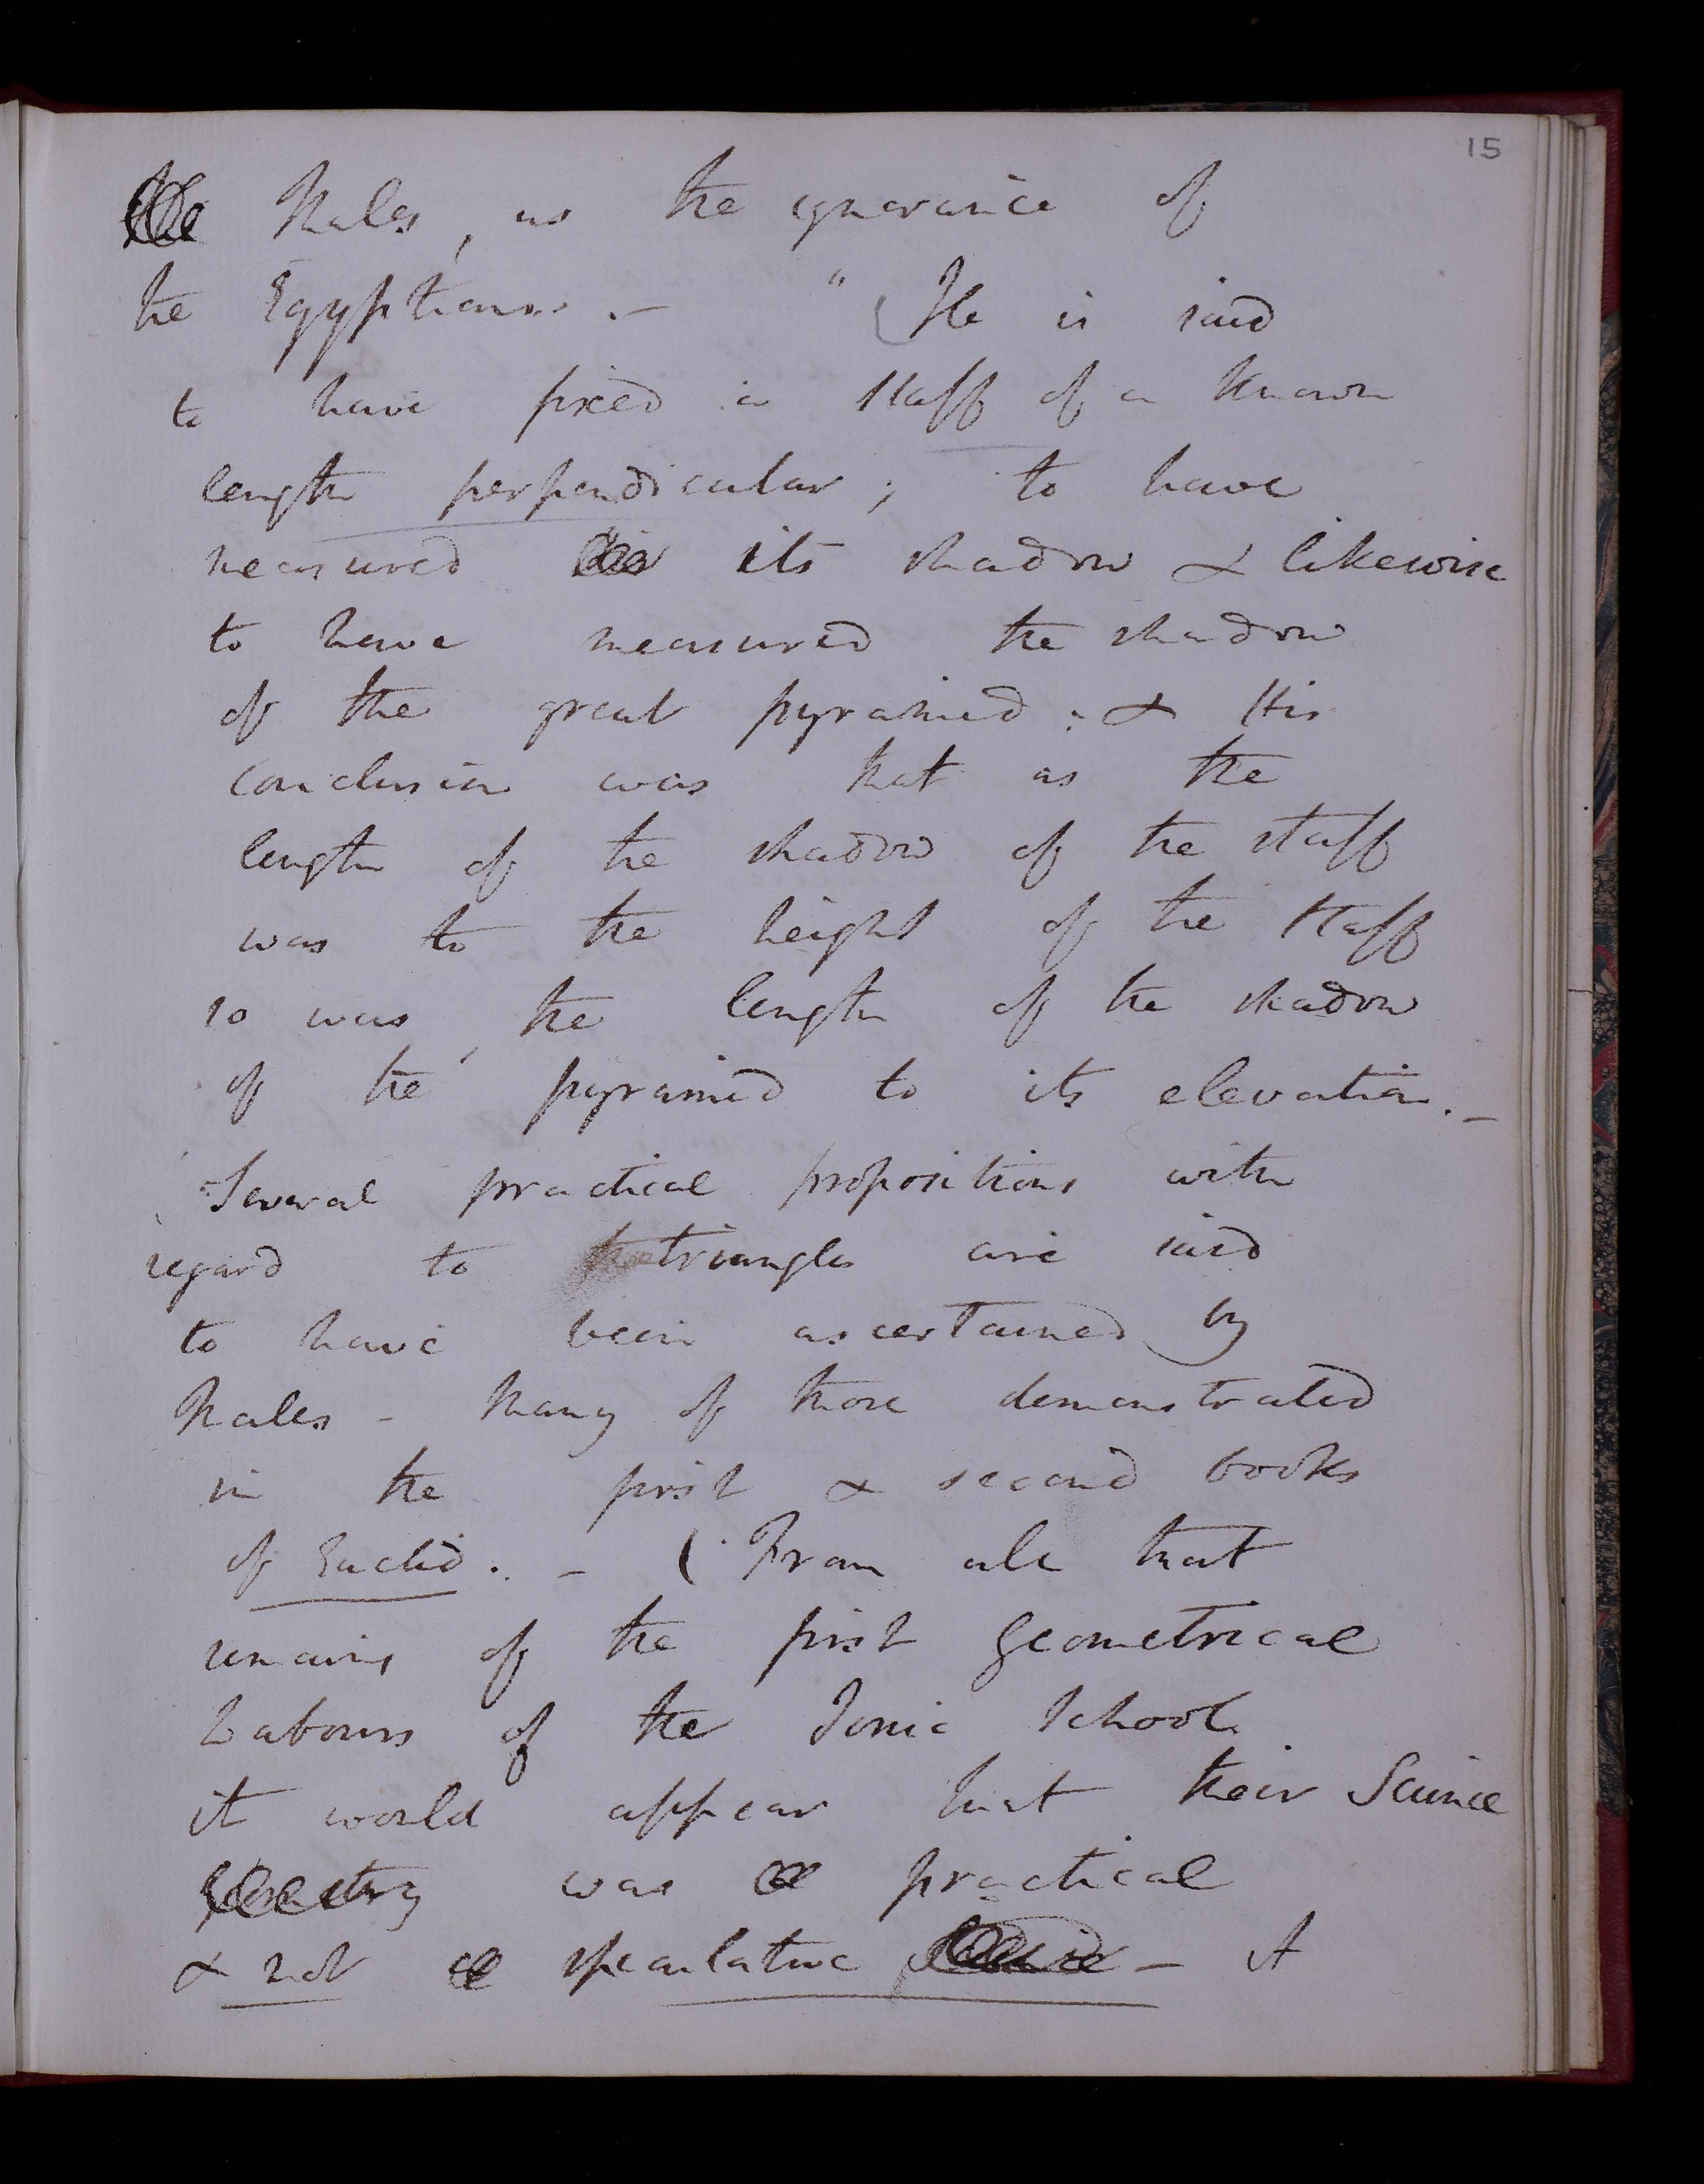 15
Thales, as the ignorance of
the Egyptians. — " (He is said
to have fixed a staff of a known
length perpendicular; to have
measured its shadow & likewise
to have measured the shadow
of the great pyramid: & His
conclusion was that as the
length of the shadow of the staff
was to the height of the staff
so was, the length of the shadow
of the pyramid to its elevation. —
Several practical propositions with
regard to the triangles are said
to have been ascertained by
Thales – Many of those demonstrated
in the first & second books
of Euclid. – ( From all that
remains of the first Geometrical
Labours of the Ionic School
it would appear that their Science
Geometry was a practical
& not a speculative – It